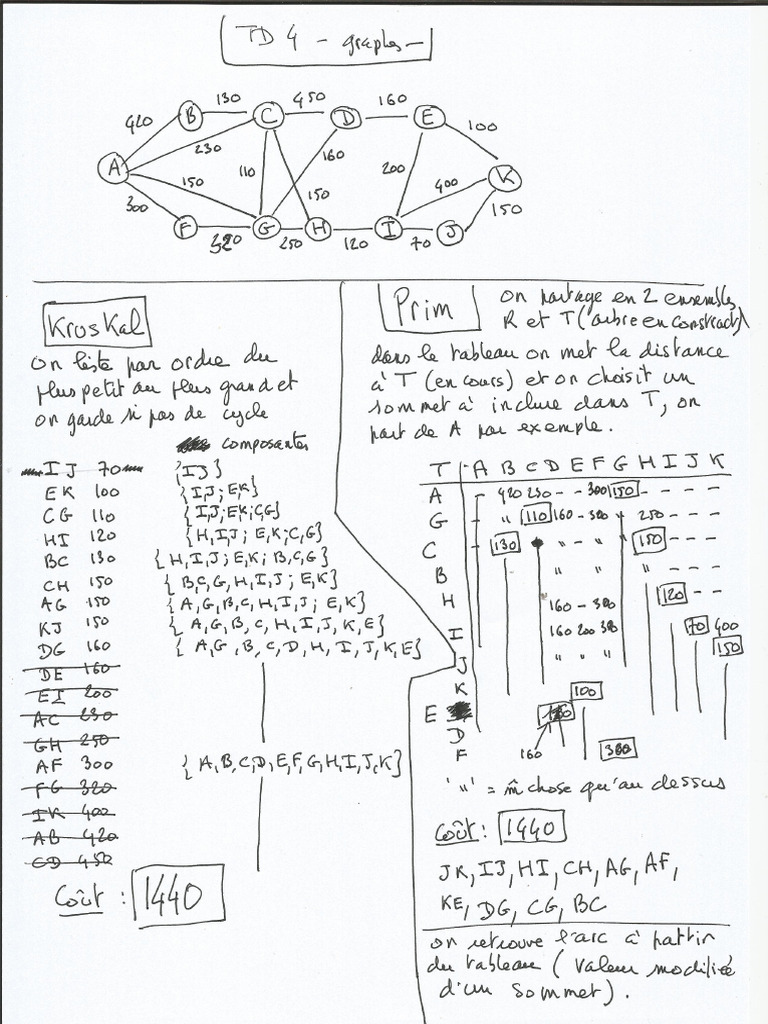 TD 4 - graphes -
420 B 130 C 450 D 160 E 100
A 230 110 160 200 K
150 150 400
300 150
F 320 G 250 H 120 I 70 J
Kruskal
on liste par ordre du
plus petit au plus grand et
on garde si pas de cycle
composantes
IJ 70 {IJ}
EK 100 {I,J ; E,K}
CG 110 {I,J; E,K; C,G}
HI 120 {H,I,J ; E,K; C,G}
BC 130 {H,I,J ; E,K; B,C,G}
CH 150 {B,C,G,H,I,J ; E,K}
AG 150 {A,G,B,C,H,I,J ; E,K}
KJ 150 {A,G,B,C,H,I,J,K,E}
DG 160 {A,G,B,C,D,H,I,J,K,E}
DE 160
EI 200
AC 230
GH 250
AF 300 {A,B,C,D,E,F,G,H,I,J,K}
FG 320
IK 400
AB 420
CD 450
Coût : 1440
Prim
on partage en 2 ensembles
R et T (arbre en construct)
dans le tableau on met la distance
à T (en cours) et on choisit un
sommet à inclure dans T, on
part de A par exemple.
T A B C D E F G H I J K
A - 420 230 - - 300 150 - - - -
G - " 110 160 - 300 250 - - -
C - 130 " - " 150 - - -
B " " " - - -
H 160 - 300 120 - -
I 160 200 300 70 400
J " " " 150
K 100
E 160
D 160
F 300
'"' = m̂ chose qu'au dessus
Coût : 1440
JK, IJ, HI, CH, AG, AF,
KE, DG, CG, BC
on retrouve l'arc à partir
du tableau (valeur modifiée
d'un sommet).